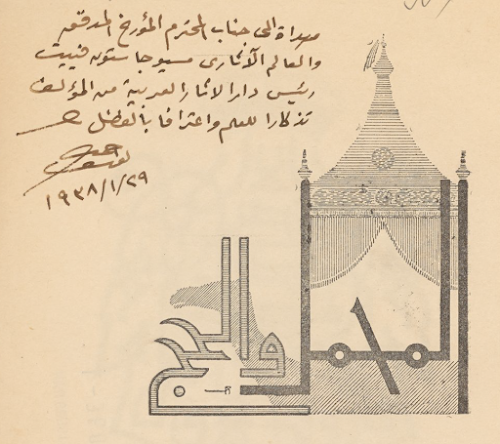 مهداة الى جناب المحترم المؤرخ المدقق
والعالم الآثارى مسيو جاستون فييت
رئيس دار الآثار العربية من المؤلف
تذكارا للعلم واعترافا بالفضل
١٩٣٨/١/٢٩
المحمل والحج